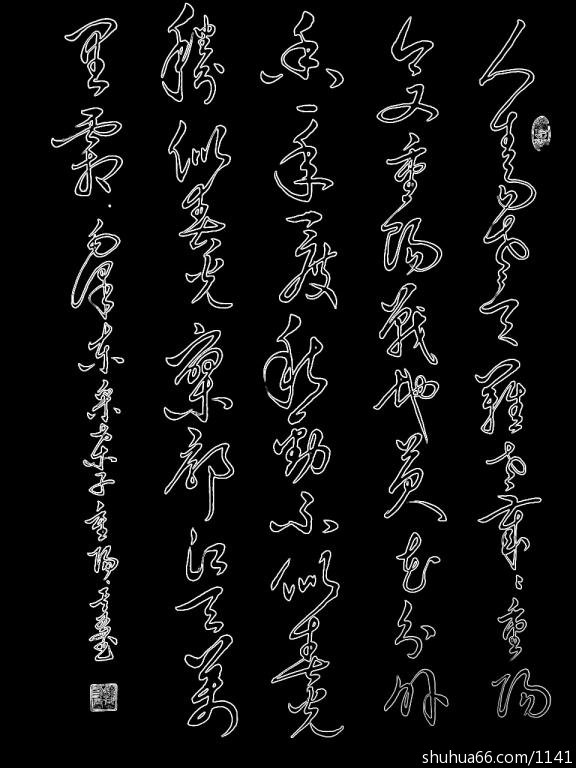 人生易老天難老歲々重陽
今又重陽戰地黃花分外
香一年一度秋勁不似春光
勝似春光寥廓江天萬
里霜毛澤東采桑子重陽
shuhua66.com/1141